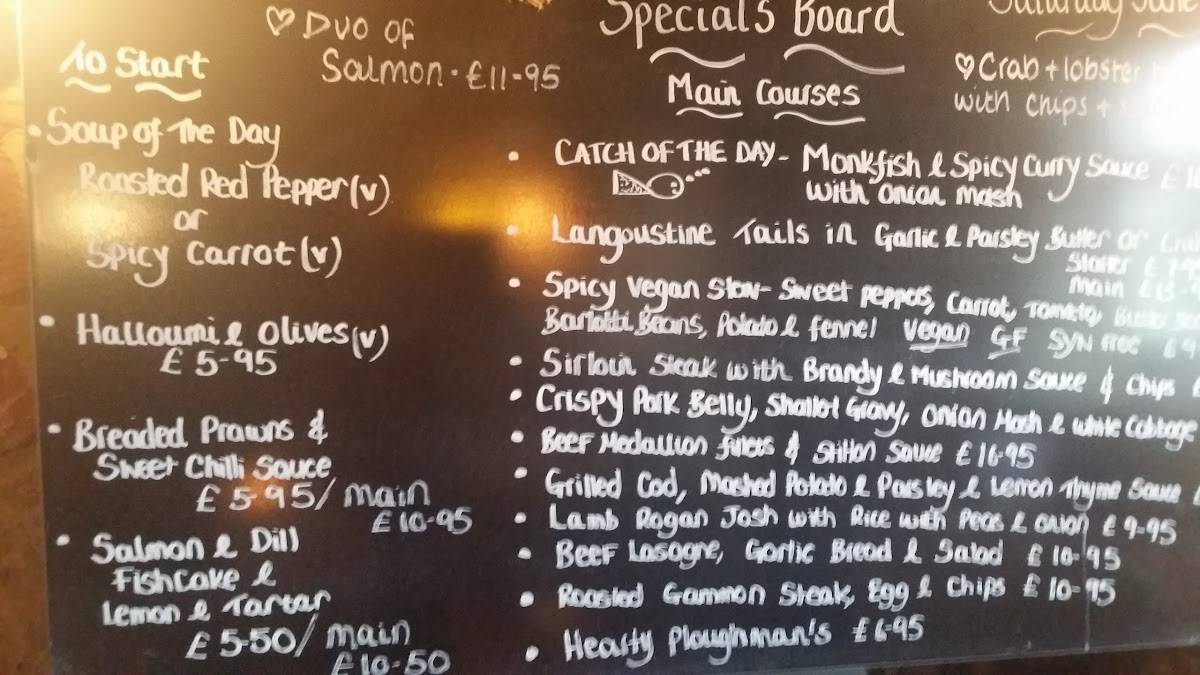 ♡ Duo of
Salmon - £11-95
To Start
• Soup of The Day
Roasted Red Pepper (v)
or
Spicy Carrot (v)
• Halloumi & Olives (v)
£5-95
• Breaded Prawns &
Sweet Chilli Sauce
£5-95/ main
£10-95
• Salmon & Dill
Fishcake &
Lemon & Tartar
£5-50/ main
£10-50
Specials Board
Main Courses
• CATCH OF THE DAY - Monkfish & Spicy Curry Sauce
with onion mash
• Langoustine Tails in Garlic & Parsley Butter or
Starter
Main
• Spicy Vegan Stew - Sweet peppers, Carrot, Tomato, Butter
Barlotti Beans, Potato & fennel Vegan GF SYN free
• Sirloin Steak with Brandy & Mushroom Sauce & Chips
• Crispy Pork Belly, Shallot Gravy, Onion Mash & White Cabbage
• Beef Medallion fillets & Stilton Sauce £16-95
• Grilled Cod, Mashed Potato & Parsley & Lemon Thyme Sauce
• Lamb Rogan Josh with Rice with Peas & onion £9-95
• Beef Lasagne, Garlic Bread & Salad £10-95
• Roasted Gammon Steak, Egg & Chips £10-95
• Hearty Ploughman's £6-95
Saturday
♡ Crab + lobster
with chips +